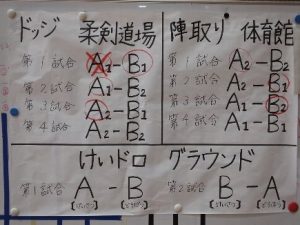 ドッジ 柔剣道場
第1試合 A1-B1
第2試合 A1-B2
第3試合 A2-B1
第4試合 A2-B2
陣取り 体育館
第1試合 A2-B2
第2試合 A2-B1
第3試合 A1-B2
第4試合 A1-B1
けいドロ グラウンド
第1試合 A - B
[けいさつ] [どろぼう]
第2試合 B - A
[けいさつ] [どろぼう]